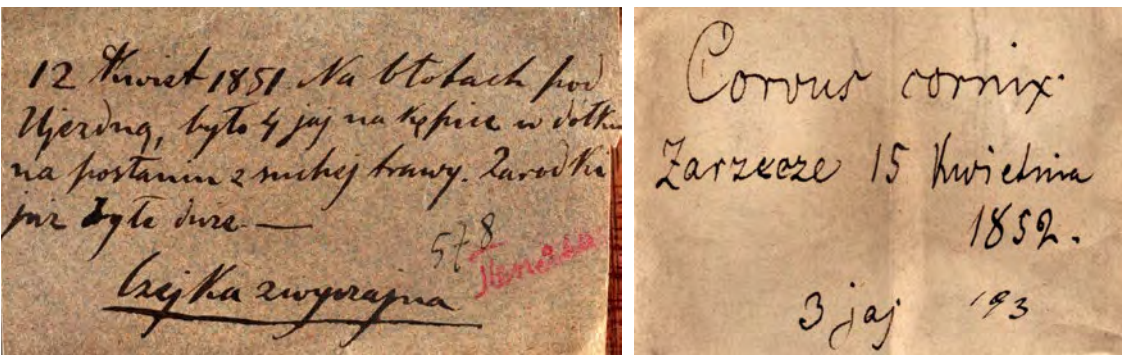 12 Kwiet 1851. Na błotach pod
Ujezdną, było 4 jaj na kępie w dołku
na posłaniu z suchej trawy. Zarodki
już były duże —
578
Czejka zwyczajna
Corvus cornix.
Zarzecze 15 Kwietnia
1852.
3 jaj 193